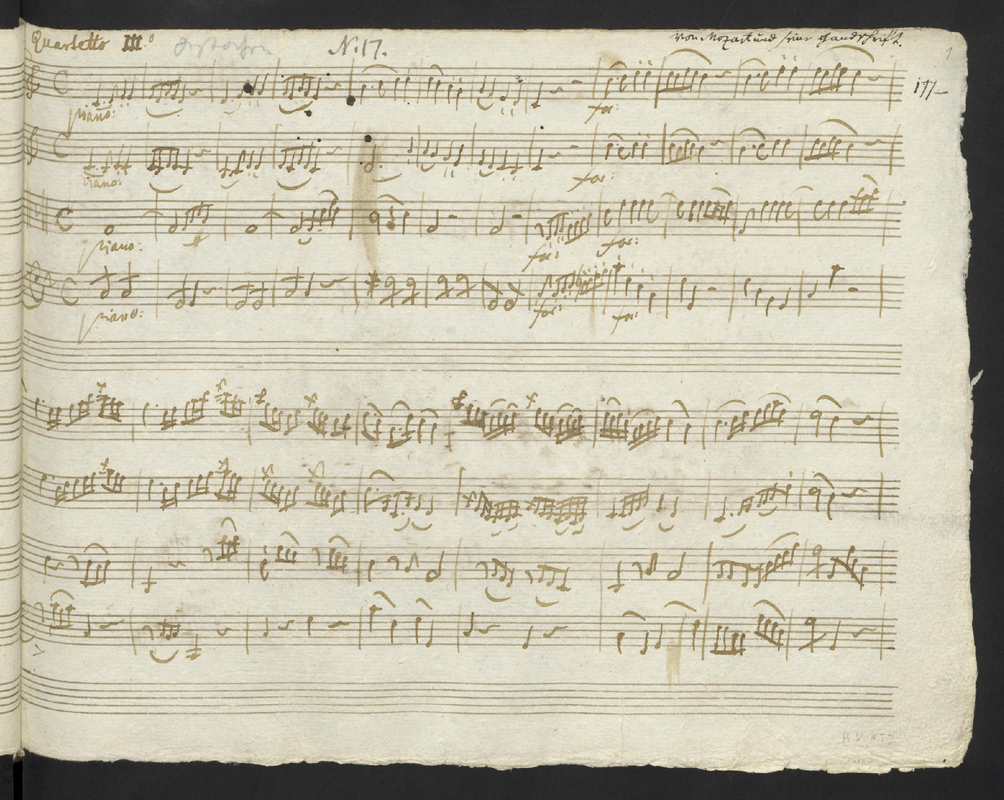 Quartetto III.º gestochen N. 17. von Mozart und seine Handschrift.
1
177
piano: for:
piano: for:
piano: for: for:
piano: for: for:
f f f f f f
f f f f